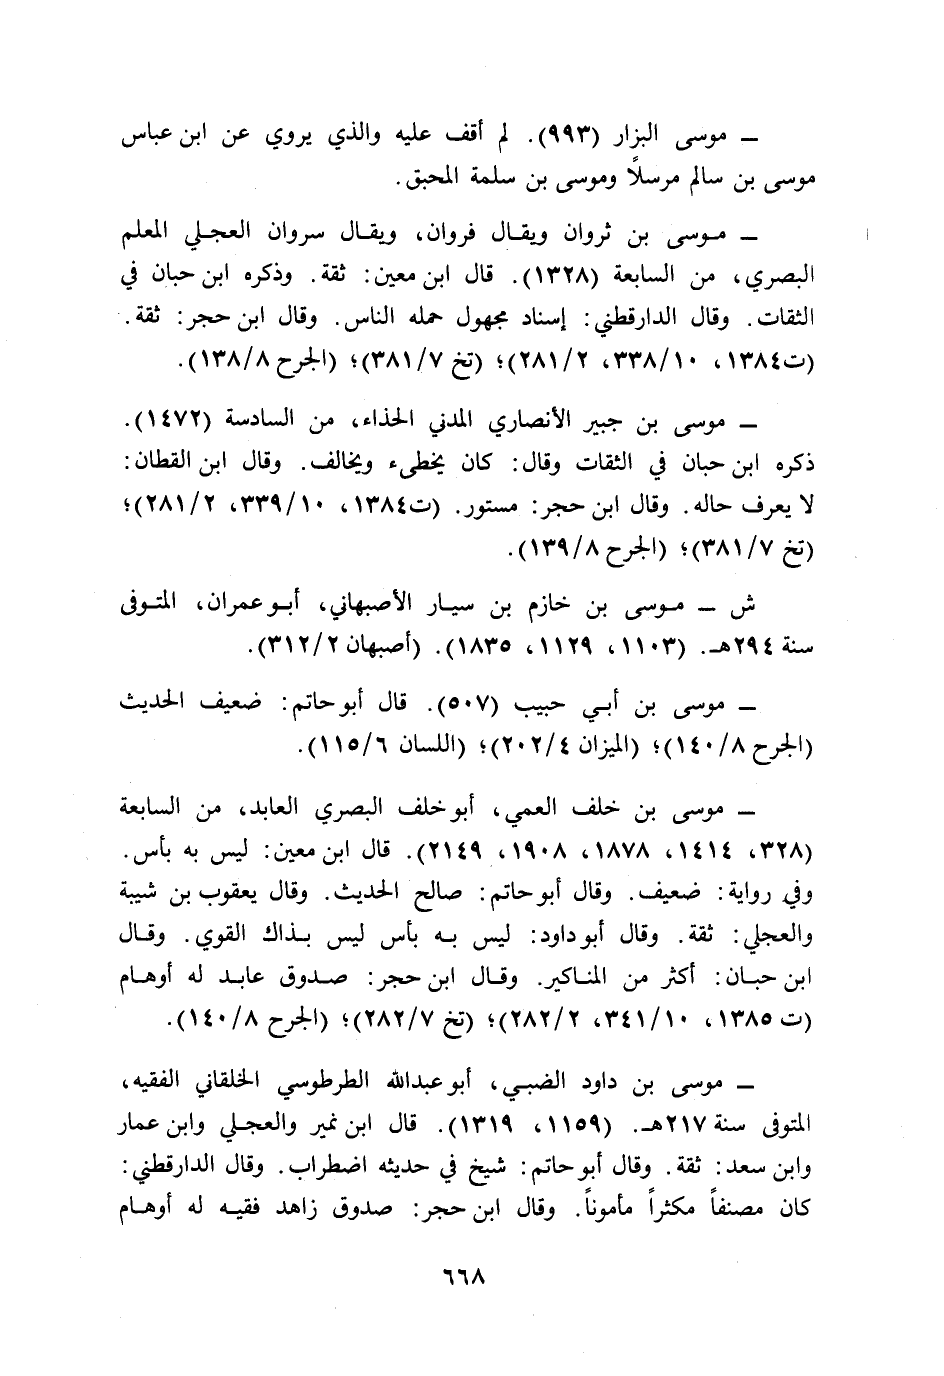 ــ موسى البزار (٩٩٣). لم أقف عليه والذي يروي عن ابن عباس
موسى بن سالم مرسلاً وموسى بن سلمة المحبق.
ــ موسى بن ثروان ويقال فروان، ويقال سروان العجلي المعلم
البصري، من السابعة (١٣٢٨). قال ابن معين: ثقة. وذكره ابن حبان في
الثقات. وقال الدارقطني: إسناد مجهول حمله الناس. وقال ابن حجر: ثقة.
(ت١٣٨٤، ٣٣٨/١٠، ٢٨١/٢)؛ (تخ ٣٨١/٧)؛ (الجرح ١٣٨/٨).
ــ موسى بن جبير الأنصاري المدني الحذاء، من السادسة (١٤٧٢).
ذكره ابن حبان في الثقات وقال: كان يخطىء ويخالف. وقال ابن القطان:
لا يعرف حاله. وقال ابن حجر: مستور. (ت١٣٨٤، ٣٣٩/١٠، ٢٨١/٢)؛
(تخ ٣٨١/٧)؛ (الجرح ١٣٩/٨).
ش ــ موسى بن خازم بن سيار الأصبهاني، أبو عمران، المتوفى
سنة ٢٩٤هـ. (١١٠٣، ١١٢٩، ١٨٣٥). (أصبهان ٣١٢/٢).
ــ موسى بن أبي حبيب (٥٠٧). قال أبو حاتم: ضعيف الحديث
(الجرح ١٤٠/٨)؛ (الميزان ٢٠٢/٤)؛ (اللسان ١١٥/٦).
ــ موسى بن خلف العمي، أبو خلف البصري العابد، من السابعة
(٣٢٨، ١٤١٤، ١٨٧٨، ١٩٠٨، ٢١٤٩). قال ابن معين: ليس به بأس.
وفي رواية: ضعيف. وقال أبو حاتم: صالح الحديث. وقال يعقوب بن شيبة
والعجلي: ثقة. وقال أبو داود: ليس به بأس ليس بذاك القوي. وقال
ابن حبان: أكثر من المناكير. وقال ابن حجر: صدوق عابد له أوهام
(ت ١٣٨٥، ٣٤١/١٠، ٢٨٢/٢)؛ (تخ ٢٨٢/٧)؛ (الجرح ١٤٠/٨).
ــ موسى بن داود الضبي، أبو عبدالله الطرطوسي الخلقاني الفقيه،
المتوفى سنة ٢١٧هـ. (١١٥٩، ١٣١٩). قال ابن نمير والعجلي وابن عمار
وابن سعد: ثقة. وقال أبو حاتم: شيخ في حديثه اضطراب. وقال الدارقطني:
كان مصنفاً مكثراً مأموناً. وقال ابن حجر: صدوق زاهد فقيه له أوهام
٦٦٨